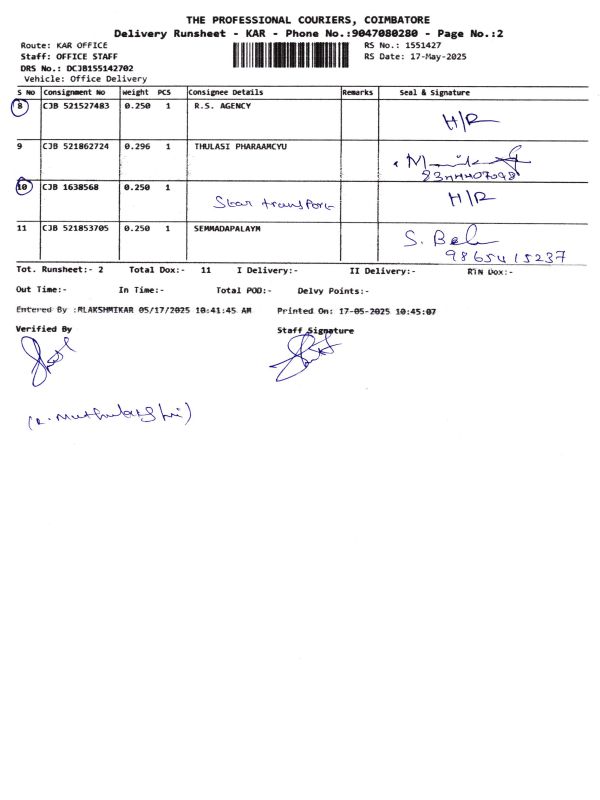 THE PROFESSIONAL COURIERS, COIMBATORE
Delivery Runsheet - KAR - Phone No.:9047080280 - Page No.:2
Route: KAR OFFICE RS No.: 1551427
Staff: OFFICE STAFF RS Date: 17-May-2025
DRS No.: DCJB155142702
Vehicle: Office Delivery
S No Consignment No Weight PCS Consignee Details Remarks Seal & Signature
8 CJB 521527483 0.250 1 R.S. AGENCY
H/R
9 CJB 521862724 0.296 1 THULASI PHARAAMCYU
10 CJB 1638568 0.250 1 H/R
Star transport
11 CJB 521853705 0.250 1 SEMMADAPALAYM
S. Bel
9865415237
Tot. Runsheet:- 2 Total Dox:- 11 I Delivery:- II Delivery:- RTN Dox:-
Out Time:- In Time:- Total POD:- Delvy Points:-
Entered By :MLAKSHMIKAR 05/17/2025 10:41:45 AM Printed On: 17-05-2025 10:45:07
Verified By Staff Signature